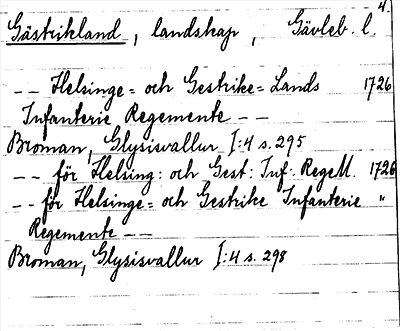 4.
Gästrikland, landskap, Gävleb. l.
-- Helsinge= och Gestrike= Lands 1726
Infanterie Regemente --
Broman, Glysisvallur I:4 s. 295
-- för Helsing: och Gest: Inf: Regem̃t. 1726
-- för Helsinge= och Gestrike Infanterie "
Regemente --
Broman, Glysisvallur I:4 s. 298